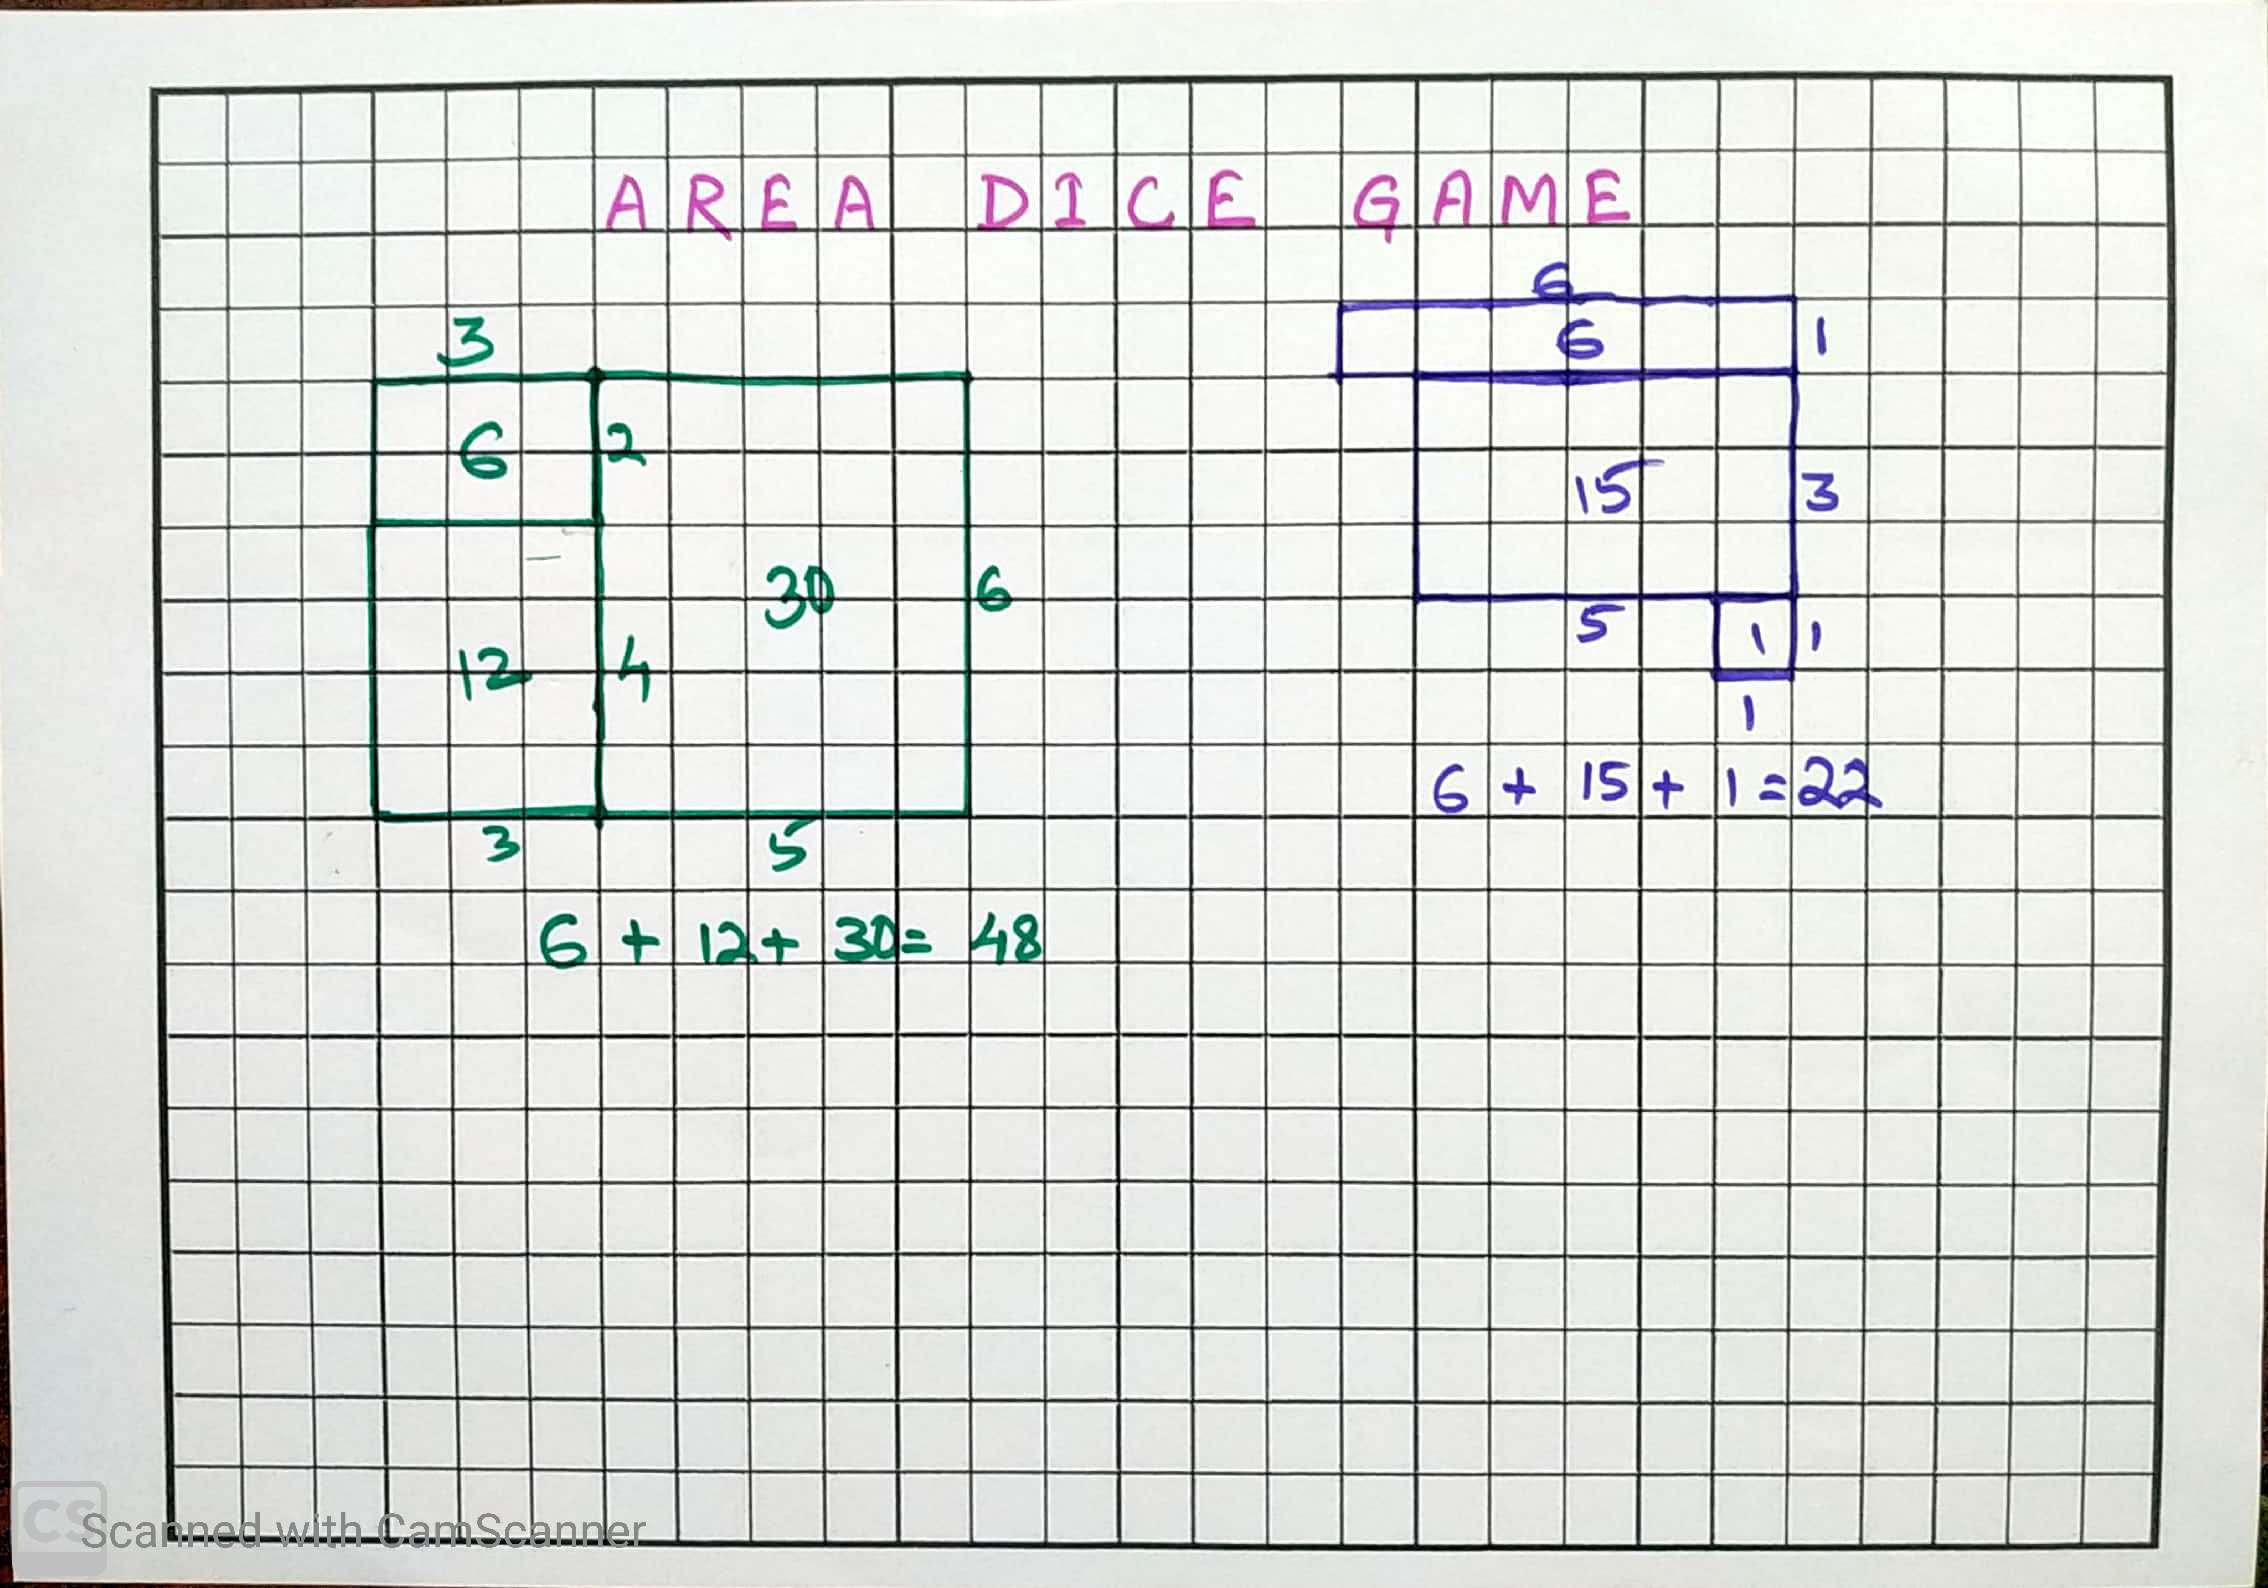 AREA DICE GAME
3
6 2
12 4
30 6
3 5
6 + 12 + 30 = 48
6
6 1
15 3
5 1 1
1
6 + 15 + 1 = 22
CS Scanned with CamScanner